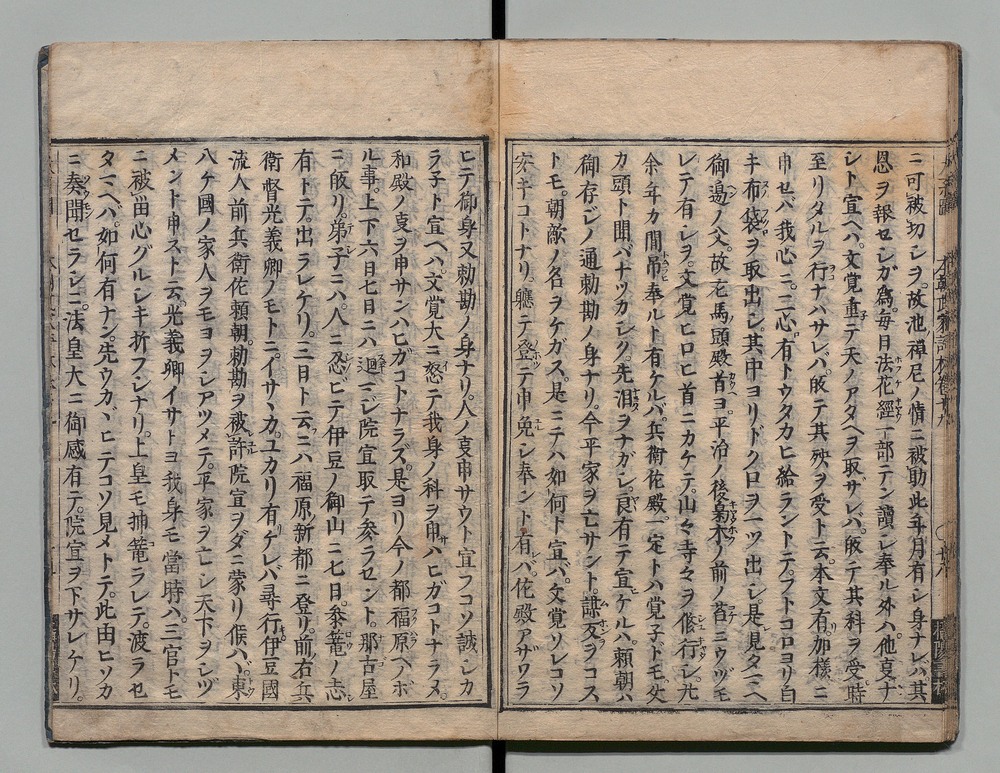 ニ可被切シヲ。故池禪尼ノ情ニ被助此年月有シ身ナレバ其
恩ヲ報センガ爲。毎日法花經一部テン讀シ奉ル外ハ。他㕝ナ
シト宣ヘハ。文覚重テ天ノアタヘヲ取サレハ。皈テ其科ヲ受時
至リタルヲ行ナハサレバ。皈テ其殃ヲ受ト云。本文有。加樣ニ
申セバ我心ニ二心有トウタカヒ給ラントテ。フトコロヨリ白
キ布袋ヲ取出シ。其中ヨリドクロヲ一ツ出シ。是見タマヘ
御邉ノ父。故左馬頭殿首ヨ。平治ノ後㮈木ノ前ノ苔ニウヅモ
レテ有シヲ。文覚ヒロヒ首ニカケテ。山々寺々ヲ修行シ。九
余年カ間吊奉ルト有ケルバ。兵衛佐殿。一定トハ覚子ドモ。父
カ頭ト聞バナツカシク。先泪ヲナガシ。良有テ宣ヒケルハ。頼朝ハ
御存ジノ通勅勘ノ身ナリ。今平家ヲ亡サント。謀反ヲコス
トモ。朝敵ノ名ヲケガス。是ニテハ如何ト宣ハ。文覚ソレコソ
安キコトナリ。軈テ登テ申免シ奉ント有バ。佐殿アザワラ
ヒテ御身又勅勘ノ身ナリ。人ノ㕝申サウト宣フコソ誠シカ
ラ子ト宣ヘハ。文覚大ニ怒テ我身ノ科ヲ申ハヒガコトナラメ。
和殿ノ㕝ヲ申サンハヒガコトナラズ。是ヨリ今ノ都福原ヘノボ
ル事。上下六日七日ニハ迴ニシ院宣取テ参ラセント。那古屋
ニ皈リ。弟子ニハ。人ニ忍ビテ伊豆ノ御山ニ七日。参篭ノ志
有トテ。出ラレケリ。三日ト云ニハ福原ノ新都ニ登リ。前右兵
衛督光義卿ノモトニ。イサヽカ。ユカリ有ケレバ尋行伊豆國
流人前兵衛佐頼朝。勅勘ヲ被許院宣ヲダニ蒙リ候ハヾ。東
八ケ國ノ家人ヲモヨヲシアツメテ。平家ヲ亡シ天下ヲシヅ
メント申スト云。光義卿イサトヨ我身モ當時ハ。三官トモ
ニ被畄心グルシキ折フシナリ。上皇モ捕篭ラレテ。渡ラセ
タマヘバ。如何有ナン。先ウカヾヒテコソ見メトテ。此由ヒソカ
ニ奏聞セラレシニ。法皇大ニ御感有テ。院宣ヲ下サレケリ。